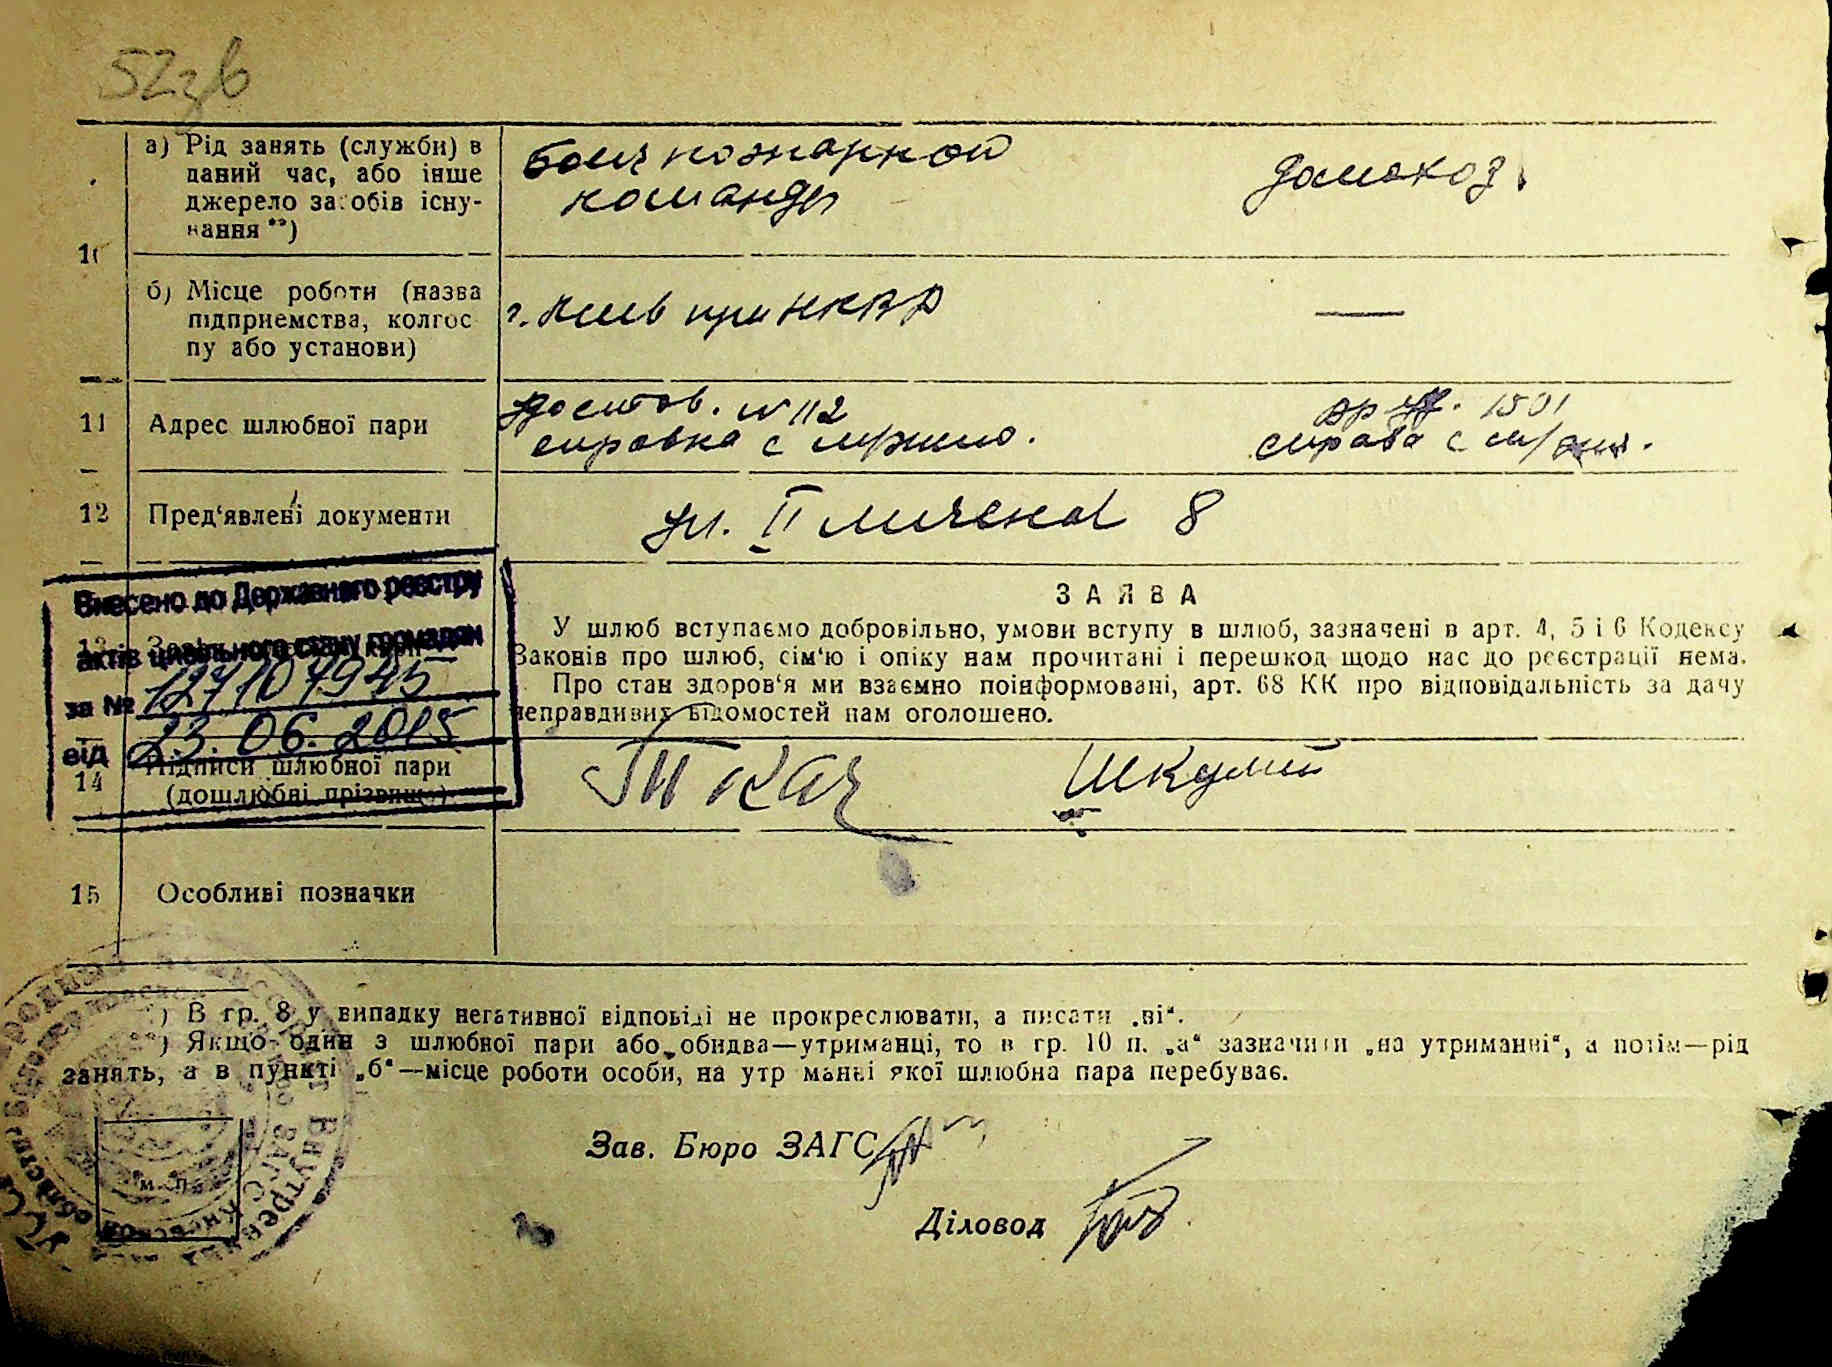 52зв
а) Рід занять (служби) в
даний час, або інше
джерело засобів існу-
вання **)
боец пожарной
команды
домохоз.
10
б) Місце роботи (назва
підприємства, колгос
пу або установи)
г. Киев при НКВД
—
11 Адрес шлюбної пари
достов. № 112
справка с
1501
справка с
12 Пред‘явлені документи
ул. 8
Внесено до Державного реєстру
актів цивільного стану громадян
за № 127107945
від 23.06.2015
ЗАЯВА
У шлюб вступаємо добровільно, умови вступу в шлюб, зазначені в арт. 4, 5 і 6 Кодексу
Законів про шлюб, сім‘ю і опіку нам прочитані і перешкод щодо нас до реєстрації нема.
Про стан здоров‘я ми взаємно поінформовані, арт. 68 КК про відповідальність за дачу
неправдивих відомостей нам оголошено.
14 Підписи шлюбної пари
(дошлюбні прізвища)
Ткач
15 Особливі позначки
) В гр. 8 у випадку негативної відповіді не прокреслювати, а писати „ні“.
) Якщо один з шлюбної пари або обидва—утриманці, то в гр. 10 п. „а“ зазначити „на утриманні“, а потім—рід
занять, а в пункті „б“—місце роботи особи, на утр манні якої шлюбна пара перебуває.
м. п.
Зав. Бюро ЗАГС
Діловод